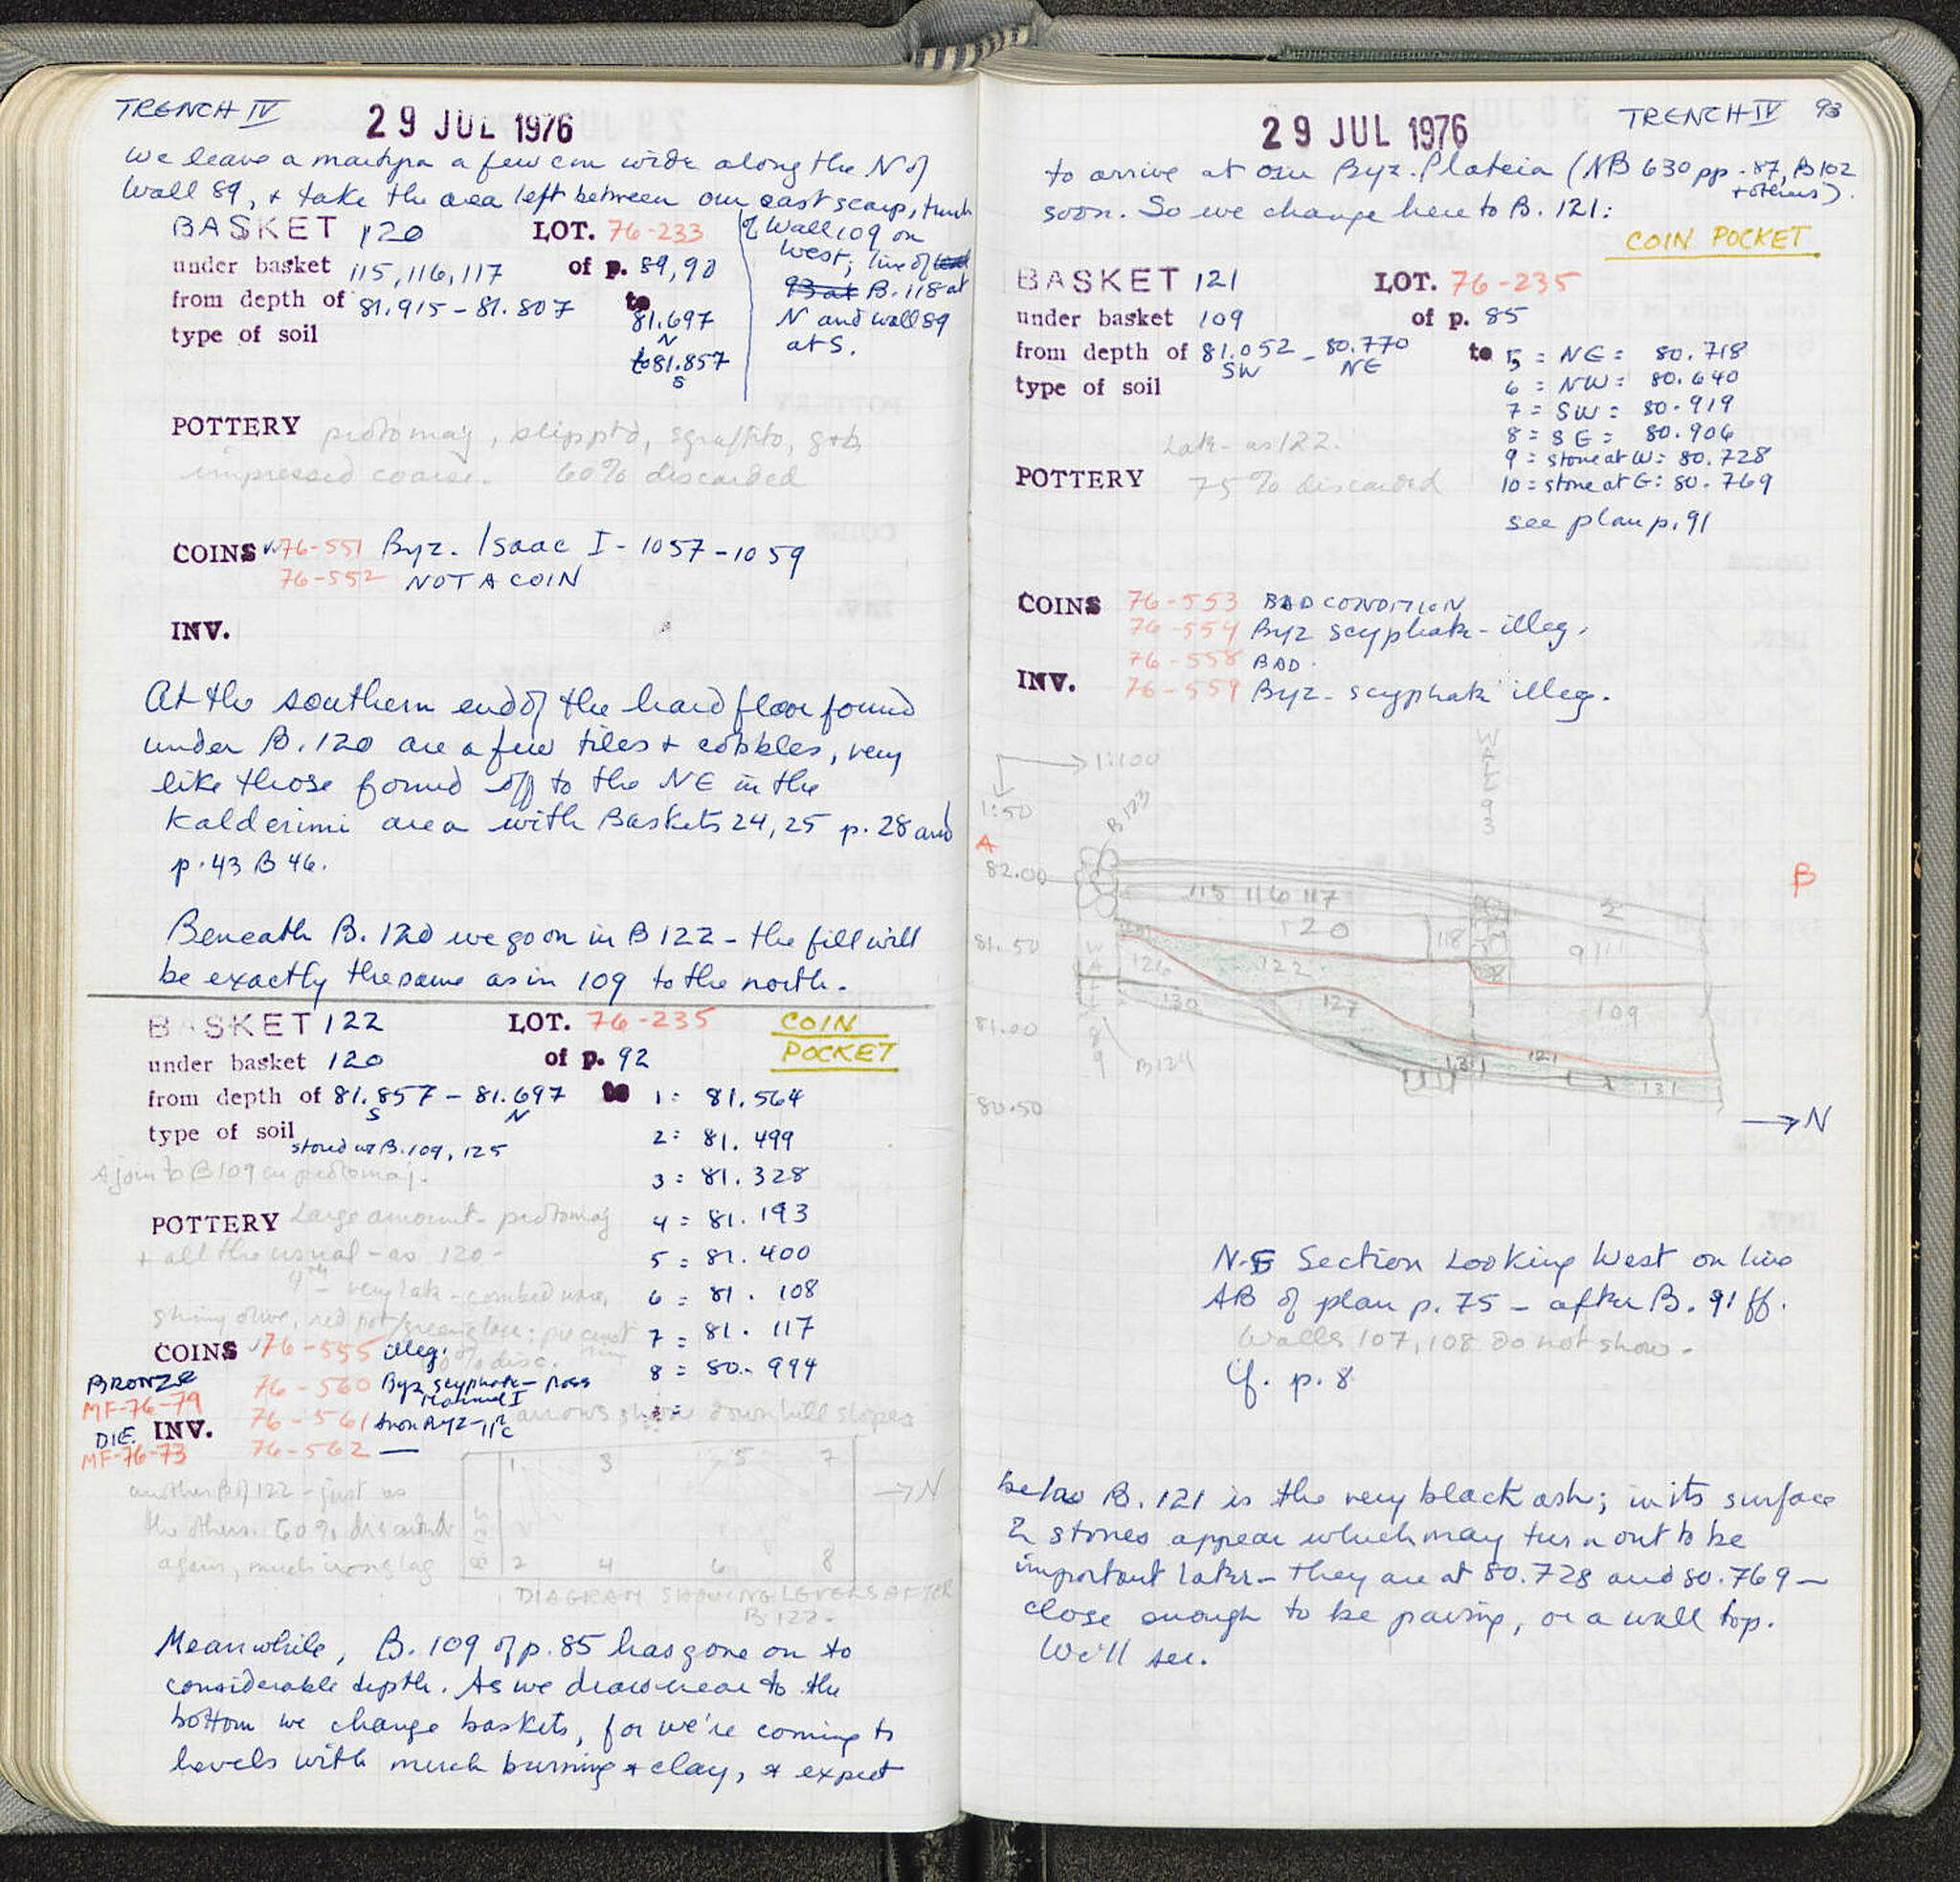 TRENCH IV
29 JUL 1976
We leave a martyra a few cm wide along the N of
Wall 89, + take the area left between our east scarp, trench
of Wall 109 on
West; line of
B. 118 at
N and wall 89
at S.
BASKET 120 LOT. 76-233
under basket 115, 116, 117 of p. 89, 90
from depth of 81.915 - 81.807 to
81.697
N
to 81.857
S
type of soil
POTTERY protomaj, slipptd, sgraffito, g+b
impressed coarse. 60% discarded
COINS ✓76-551 Byz. Isaac I - 1057-1059
76-552 NOT A COIN
INV.
At the southern end of the hard floor found
under B. 120 are a few tiles + cobbles, very
like those found off to the NE in the
Kalderimi area with Baskets 24, 25 p. 28 and
p. 43 B 46.
Beneath B. 120 we go on in B 122 - the fill will
be exactly the same as in 109 to the north.
BASKET 122 LOT. 76-235 COIN
POCKET
under basket 120 of p. 92
from depth of 81.857 - 81.697 to
S N
1: 81.564
2: 81.499
3: 81.328
4 = 81.193
5 = 81.400
6 = 81.108
7 = 81.117
8 = 80.994
type of soil
stored w B. 109, 125
A join to B 109 in protomaj.
POTTERY Large amount - protomaj
+ all the usual - as 120 -
very late - combed ware,
shiny olive, red
COINS ✓76-555 illeg.
% disc.
BRONZE
MF-76-79
76-560 Byz scyphate - poss
Manuel I
DIE. INV.
MF-76-73
76-561 Anon Byz - 11th c
76-562 —
arrows show down hill slopes
1 3 5 7
→ N
2 4 6 8
DIAGRAM SHOWING LEVELS AFTER
B 122.
another B of 122 - just as
the others. 60% discard
again, much iron slag
Meanwhile, B. 109 of p. 85 has gone on to
considerable depth. As we draw near to the
bottom we change baskets, for we're coming to
levels with much burning + clay, + expect
29 JUL 1976
TRENCH IV 93
to arrive at our Byz. Plateia (NB 630 pp. 87, B 102
+ others).
soon. So we change here to B. 121:
COIN POCKET
BASKET 121 LOT. 76-235
under basket 109 of p. 85
from depth of 81.052 - 80.770 to
SW NE
5 = NE: 80.718
6 = NW: 80.640
7 = SW: 80.919
8 = SE: 80.906
9 = stone at W: 80.728
10 = stone at E: 80.769
see plan p. 91
type of soil
Late - as 122.
POTTERY 75% discarded
COINS 76-553 BAD CONDITION
76-554 Byz scyphate - illeg.
76-558 BAD.
INV. 76-559 Byz - scyphate illeg.
1:100
1:50
B 123
WALL 93
A
B
82.00
115 116 117
2
120
118
91
81.50
122
126
127
130
109
81.00
WALL 89
B124
131
121
131
80.50
→ N
N-S Section Looking West on line
AB of plan p. 75 - after B. 91 ff.
Walls 107, 108 do not show.
Cf. p. 8
below B. 121 is the very black ash; in its surface
2 stones appear which may turn out to be
important later - they are at 80.728 and 80.769 -
close enough to be paving, or a wall top.
We'll see.